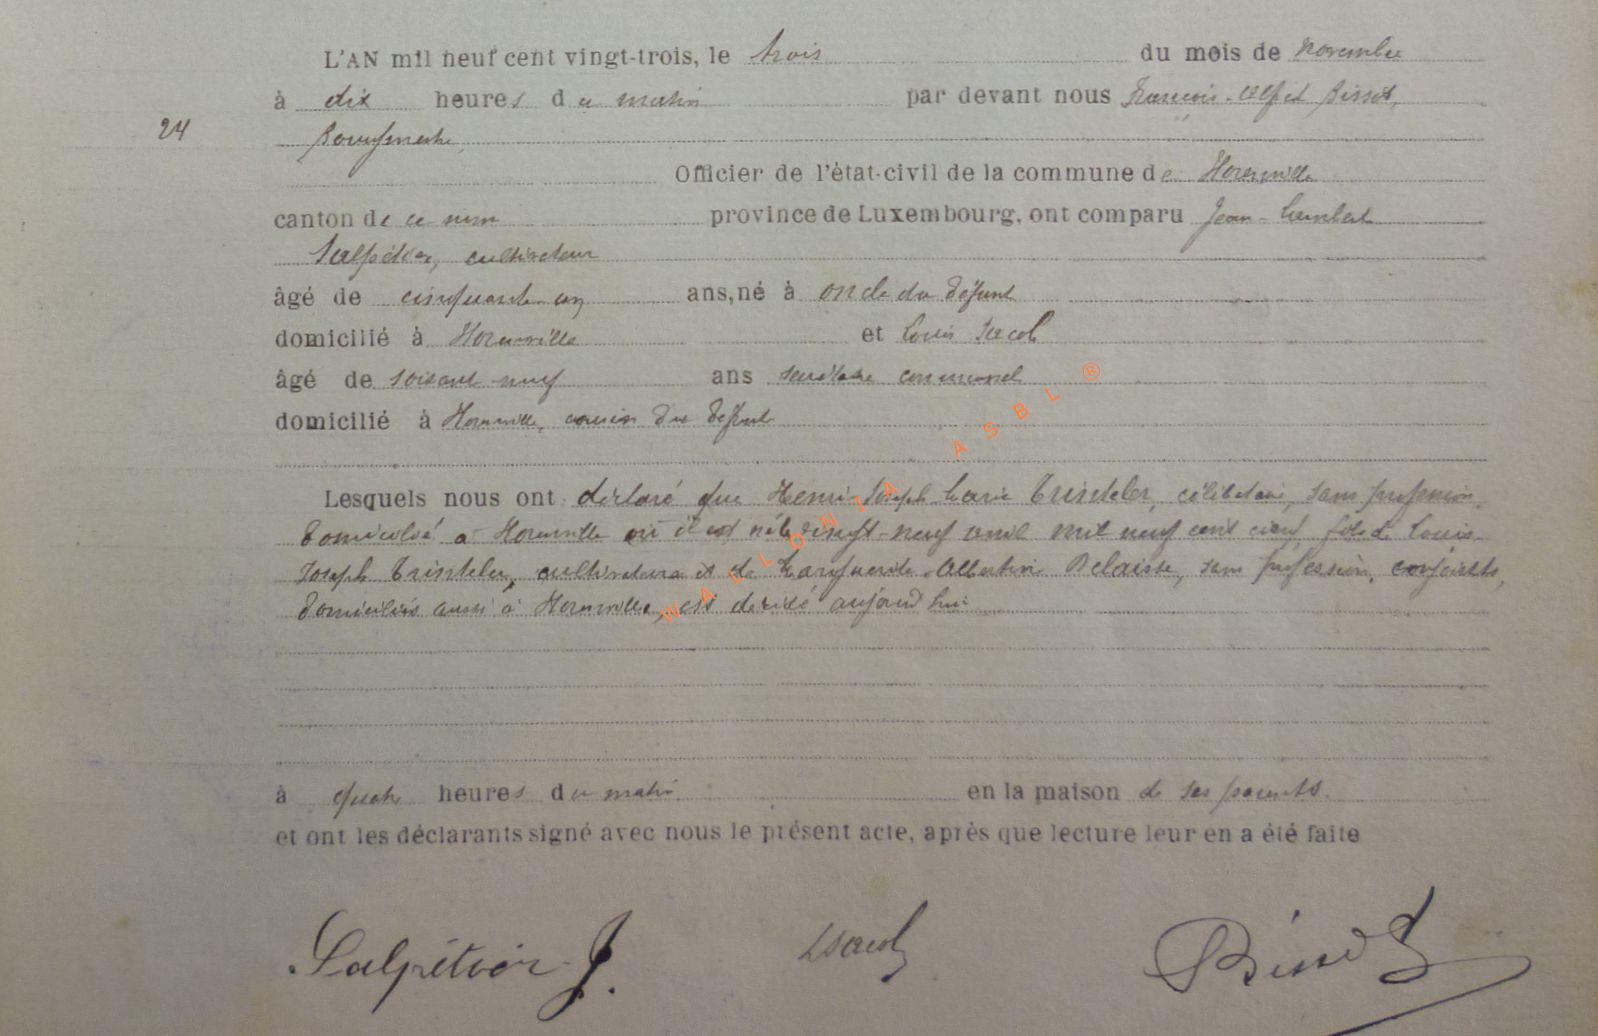 L'AN mil neuf cent vingt-trois, le trois du mois de novembre
à dix heures du matin par devant nous François-Alfred Bissot,
24
Bourgmestre,
Officier de l'état-civil de la commune de Horenville
canton de ce nom province de Luxembourg, ont comparu Jean-Lambert
Salpétier, cultivateur
âgé de cinquante un ans, né à oncle du défunt
domicilié à et Louis Jacob
âgé de soixante neuf ans secrétaire communal
domicilié à cousin du défunt
Lesquels nous ont déclaré que Henri-Joseph-Marie Trinteler, célibataire, sans profession,
domicilié à où il est né le vingt-neuf avril mil neuf cent cinq, fils de Louis-
Joseph Trinteler, cultivateur et de Marguerite-Albertine Delaisse, sans profession, conjoints,
domiciliés aussi à est décédé aujourd'hui
à quatre heures du matin en la maison de ses parents.
et ont les déclarants signé avec nous le présent acte, après que lecture leur en a été faite
Salpétier J.
L Jacob
Bissot
WALLONIA ASBL ®